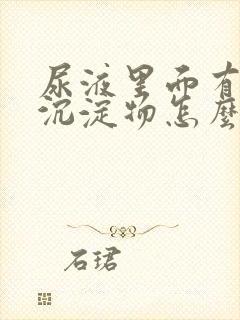 尿液里面有
沉淀物怎麽
石珺